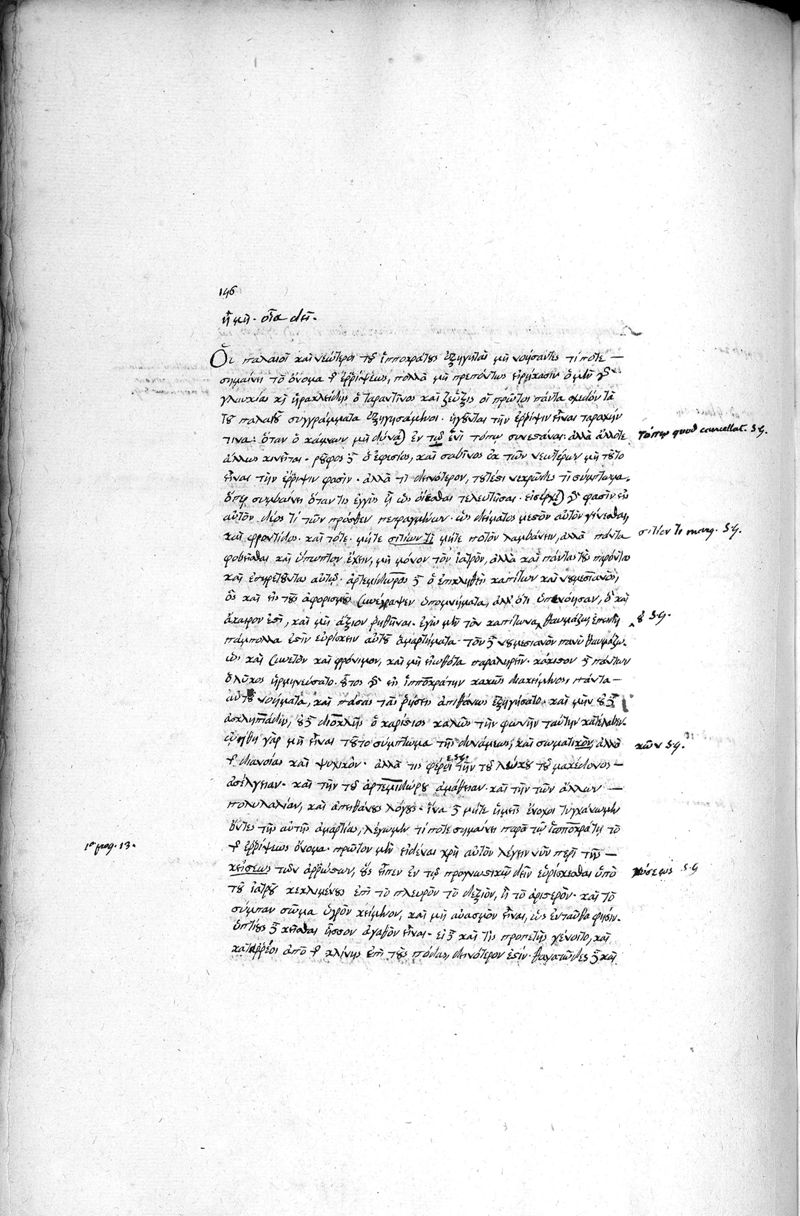 146
ἢ μὴ. οἷα δεῖ.
Οἱ παλαιοὶ καὶ νεώτεροι τοῦ ἱπποκράτους ἐξηγηταὶ μὴ νοήσαντες τί ποτε
σημαίνει τὸ ὄνομα τῆς ἐῤῥίψεως, πολλὰ μὴ πρεπόντως εἰρήκασιν. ὁ μὲν γὰρ
γλαυκίας καὶ ἡρακλείδης ὁ ταραντῖνος καὶ ζεῦξις οἱ πρῶτοι πάντα σχεδὸν τὰ
τοῦ παλαιοῦ συγγράμματα ἐξηγησάμενοι. ἡγοῦνται τὴν ἔῤῥιψιν εἶναι ταραχήν
τινα. ὅταν ὁ κάμνων μὴ δύναται ἐν τῷ ἑνὶ τόπῳ συνεστάναι ἀλλὰ ἄλλοτε
ἄλλως κινεῖται. ῥοῦφος δὲ ὁ ἐφέσιος, καὶ σαβῖνος ἐκ τῶν νεωτέρων μὴ τοῦτο
εἶναι τὴν ἔῤῥιψιν φασίν. ἀλλά τι δεινότερον, τουτέστι νεκρῶδές τι σύμπτωμα,
ὅπερ συμβαίνει ὅταν τις ἐγγὺς ᾖ ὡς οἴεσθαι τελευτῆσαι. εἰσέρχεται γὰρ φασὶν εἰς
αὐτὸν δέος τὶ τῶν πρόσθεν πεπραγμένων. ὡς δείματος μεστὸν αὐτὸν γίνεσθαι
καὶ φροντίδος. καὶ τότε μήτε σιτίων τὲ μήτε ποτὸν λαμβάνειν, ἀλλὰ πάντα
φοβεῖσθαι καὶ ὕποπτον ἔχειν, μὴ μόνον τὸν ἰατρὸν, ἀλλὰ καὶ πάντας τοὺς παρόντας
καὶ ὑπηρετοῦντας αὐτῷ. ἀρτεμίδωρος δὲ ὁ ἐπικληθεὶς καπίτων καὶ νυμεσιανὸς,
ὃς καὶ εἰς τοὺς ἀφορισμοὺς συνέγραψεν ὑπομνήματα, ἀλλ' ὅτι ὑπενόησαν, καὶ
ἄκαιρον ἐστὶ, καὶ μὴ ἄξιον ῥηθῆναι. ἐγὼ μὲν τὸν καπίτωνα θαυμάζω, ἐπειδὴ
πάμπολλα ἐστὶν εὑρίσκειν αὐτοῦ ἁμαρτήματα. τὸν δὲ νυμεσιανὸν πάνυ θαυμάζω.
ὡς καὶ συνετὸν καὶ φρόνιμον, καὶ μὴ εἰωθότα παραληρεῖν. κάκιστον δὲ πάντων
ὁ λύκος ἡρμηνεύσατο. οὗτος γὰρ εἰς ἱπποκράτην κακῶς διακείμενος, πάντα
αὐτοῦ νοήματα, καὶ πάσας τὰς ῥήσεις ἀπιθάνως ἐξηγήσατο. καὶ μὴν
ἀσκληπιάδην, διοκλῆς ὁ καρύστιος καλῶς τὴν φωνὴν ταύτην κατέλαβεν.
ᾠήθη γὰρ μὴ εἶναι τοῦτο σύμπτωμα τῆς δυνάμεως, καὶ σωματικὸν, ἀλλὰ
τῆς διανοίας καὶ ψυχικόν. ἀλλὰ τις φέρει τὴν τοῦ λύκου τοῦ μακεδόνος
ἀσέλγειαν. καὶ τὴν τοῦ ἀρτεμιδώρου ἀμάθειαν. καὶ τὴν τῶν ἄλλων
πολυλαλίαν, καὶ ἀπιθάνους λόγους. ἵνα δὲ μήτε ἡμεῖς ἔνοχοι τυγχάνωμεν
ὄντες τῆς αὐτῆς ἁμαρτίας, λέγωμεν τί ποτε σημαίνει παρὰ τῷ ἱπποκράτῃ τὸ
τῆς ἐῤῥίψεως ὄνομα. πρῶτον μὲν εἰδέναι χρὴ αὐτὸν λέγειν νῦν περὶ τῆς
κείσεως τῶν ἀῤῥώστων, ἧς εἶπεν ἐν τῷ προγνωστικῷ δεῖν εὑρίσκεσθαι ὑπὸ
τοῦ ἰατροῦ κεκλιμένους ἐπὶ τὸ πλευρὸν τὸ δεξιὸν, ἢ τὸ ἀριστερόν. καὶ τὸ
σύμπαν σῶμα ὑγρὸν κείμενον, καὶ μὴ αὐασμὸν εἶναι, ὡς ἐνταῦθα φησίν.
ὑπτίους δὲ κεῖσθαι ἧσσον ἀγαθὸν εἶναι. εἰ δὲ καί τις προπετὴς γένοιτο, καὶ
καταῤῥέοι ἀπὸ τῆς κλίνης ἐπὶ τοὺς πόδας, δεινότερον ἐστίν. θανατῶδες δὲ καὶ
τόπῳ quod cancellat. S.G.
σιτίον τε marg. S.G.
οὐ S.G.
κῶν S.G.
1ο prog. 13.
κείσεως S.G